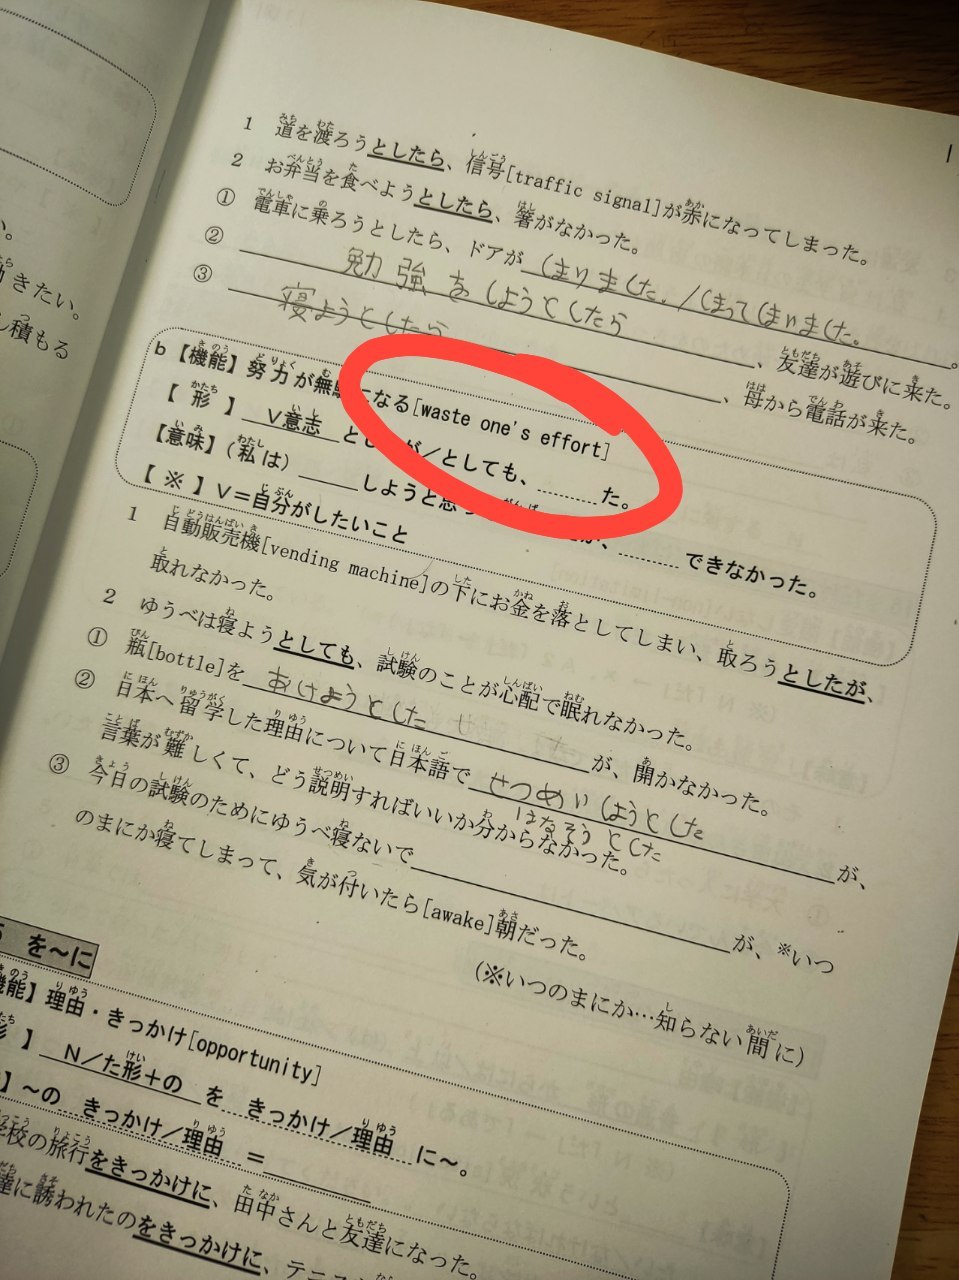 1 道を渡ろうとしたら、信号[traffic signal]が赤になってしまった。
2 お弁当を食べようとしたら、箸がなかった。
① 電車に乗ろうとしたら、ドアが しまりました。/しまってしまいました。
② 勉強をしようとしたら、友達が遊びに来た。
③ 寝ようとしたら、母から電話が来た。
b【機能】努力が無駄になる[waste one's effort]
【形】 V意志 とし が/としても、 た。
【意味】(私は) しようと思っ が、 できなかった。
【※】V=自分がしたいこと
1 自動販売機[vending machine]の下にお金を落としてしまい、取ろうとしたが、
取れなかった。
2 ゆうべは寝ようとしても、試験のことが心配で眠れなかった。
① 瓶[bottle]を あけようとした が、開かなかった。
② 日本へ留学した理由について日本語で せつめいしようとした が、
はなそうとした
言葉が難しくて、どう説明すればいいか分からなかった。
③ 今日の試験のためにゆうべ寝ないで が、※いつ
のまにか寝てしまって、気が付いたら[awake]朝だった。
(※いつのまにか…知らない間に)
を～に
機能】理由・きっかけ[opportunity]
】 N/た形+の を きっかけ/理由 に～。
】～の きっかけ/理由 =
校の旅行をきっかけに、田中さんと友達になった。
達に誘われたのをきっかけに、テニス
い。
きたい。
し積もる